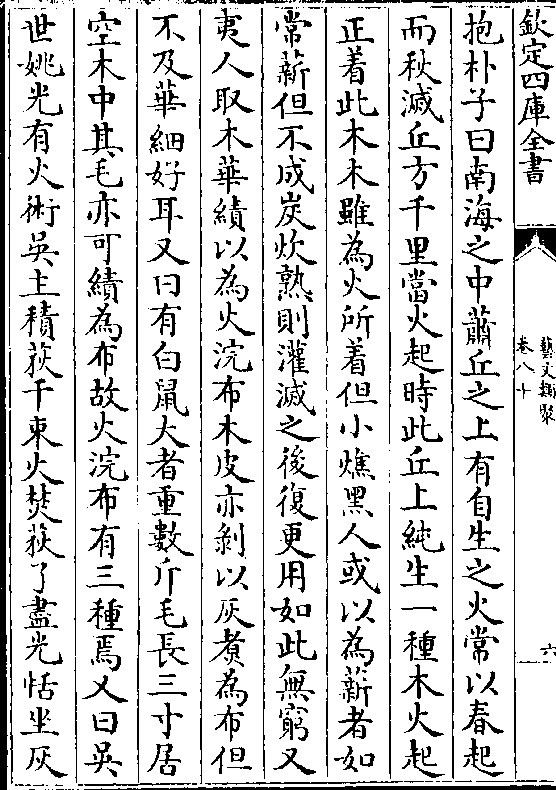 欽定四庫全書
藝文類聚
卷八十
六
抱朴子曰南海之中蕭丘之上有自生之火常以春起
而秋滅丘方千里當火起時此丘上純生一種木火起
正着此木木雖為火所着但小燋黑人或以為薪者如
常薪但不成炭炊熟則灌滅之後復更用如此無窮又
夷人取木華績以為火浣布木皮亦剝以灰煑為布但
不及華細好耳又曰有白鼠大者重數斤毛長三寸居
空木中其毛亦可績為布故火浣布有三種焉又曰吳
世姚光有火術吳主積荻千束火焚荻了盡光恬坐灰